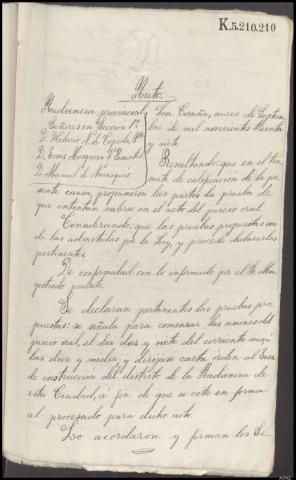 K.5.210.210
Auto.
Audiencia provincial
Señores en Sección 1ª
D. Hilario N. de Cepeda, Pte
D. Jesús Mosquera
D. Manuel de
La Coruña, nueve de Septiem-
bre de mil novecientos treinta
y siete
Resultando: que en el trá-
mite de calificación de la pre-
sente causa, propusieron las partes la prueba de
que intentan valerse en el acto del juicio oral.
Considerando: que las pruebas propuestas son
de las admitidas por la Ley, y procede declararlas
pertinentes.
De conformidad con lo informado por el Sr. Ma-
gistrado ponente.
Se declaran pertinentes las pruebas pro-
puestas: se señala para comenzar las sesiones del
juicio oral, el día diez y siete del corriente mes a
las diez y media; y diríjase carta orden al Juez
de instrucción del distrito de la Audiencia de
esta Ciudad, á fin de que se cite en forma
al procesado para dicho acto
Lo acordaron y firman los Se-